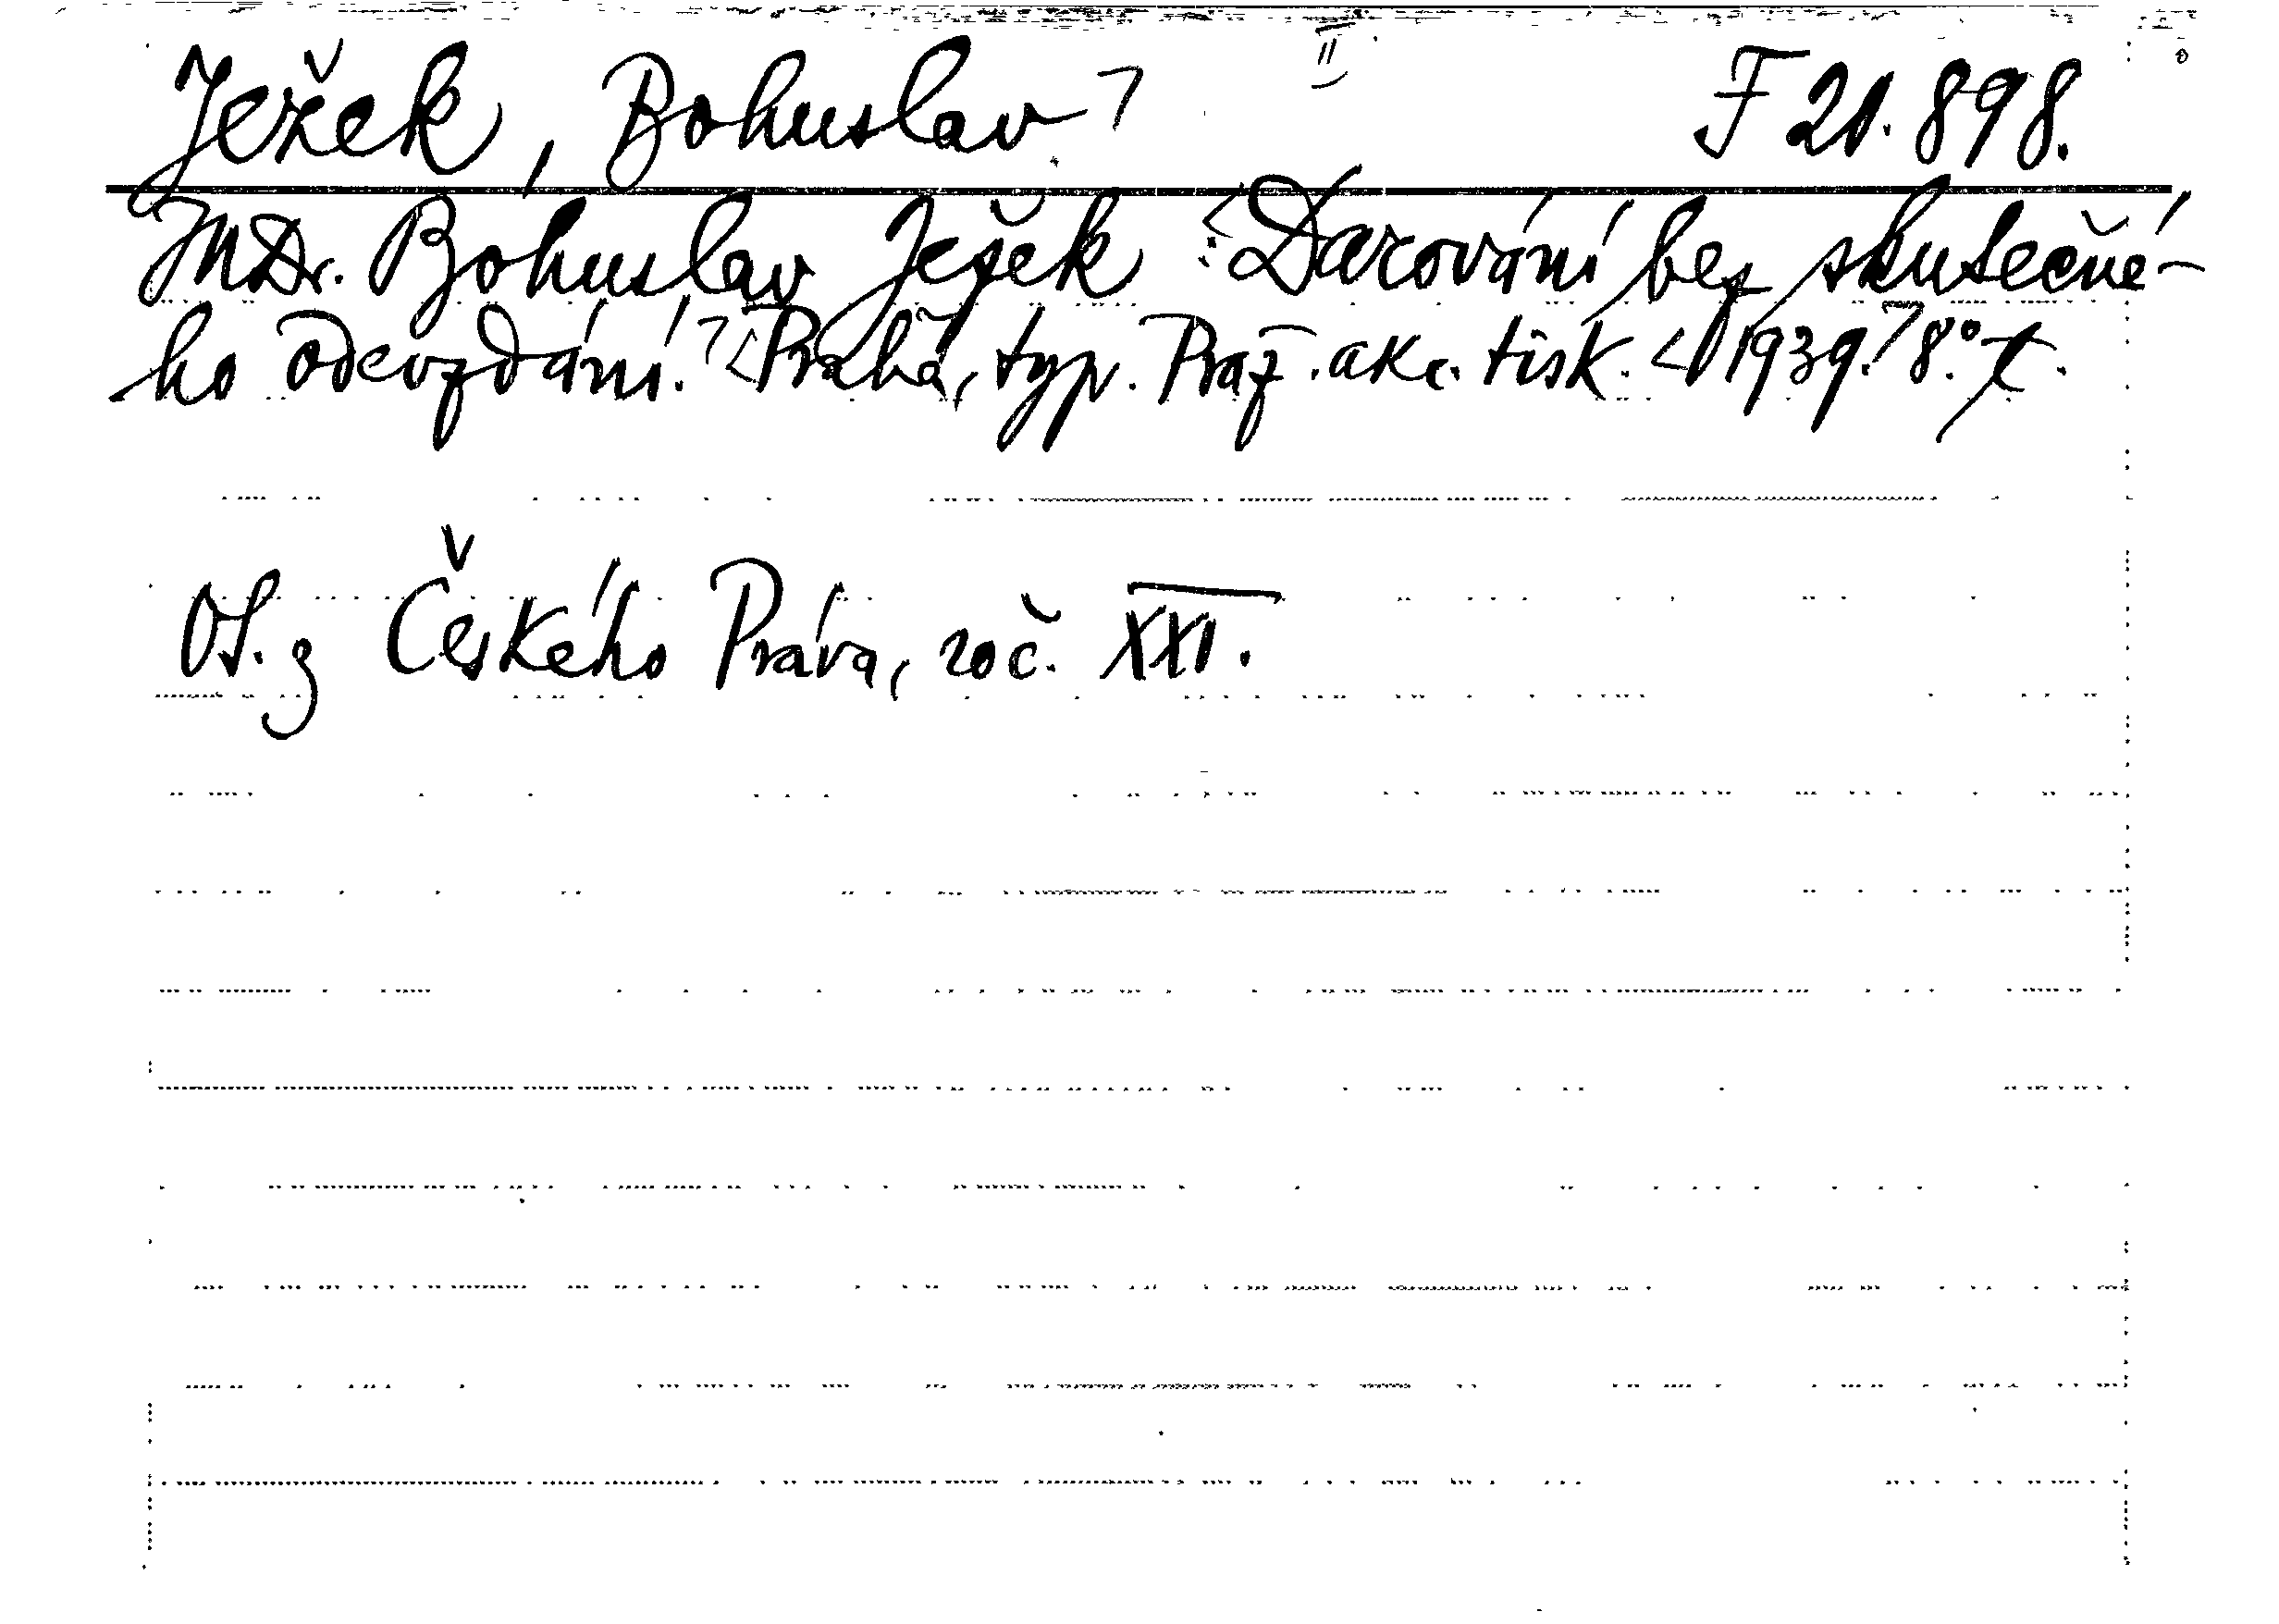 Ježek, Bohuslav. II F 21.898.
JUDr. Bohuslav Ježek: Darování bez skutečné-
ho odevzdání. Praha, typ. Praž. akc. tisk. 1939. 8°.
Ot. z Českého Práva, roč. XXI.